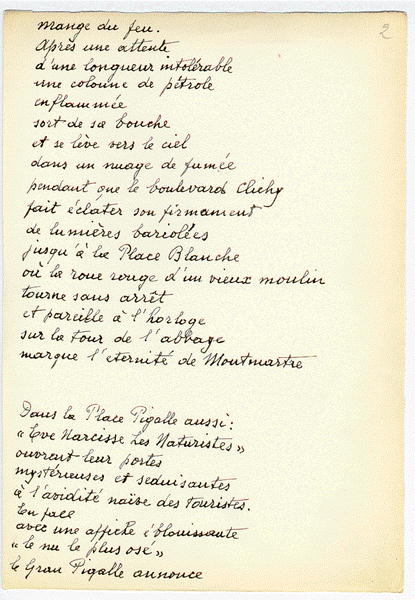 2
mange du feu.
Après une attente
d'une longueur intolérable
une colonne de pétrole
enflammée
sort de sa bouche
et se lève vers le ciel
dans un nuage de fumée
pendant que le boulevard Clichy
fait éclater son firmament
de lumières bariolées
jusqu'à la Place Blanche
où la roue rouge d'un vieux moulin
tourne sans arrêt
et pareille à l'horloge
sur la tour de l'abbaye
marque l'eternité de Montmartre
Dans la Place Pigalle aussi:
"Eve Narcisse Les Naturistes"
ouvrent leur portes
mystérieuses et seduisantes
à l'avidité naïve des touristes.
En face
avec une affiche éblouissante
"le nu le plus osé"
le Gran Pigalle annonce